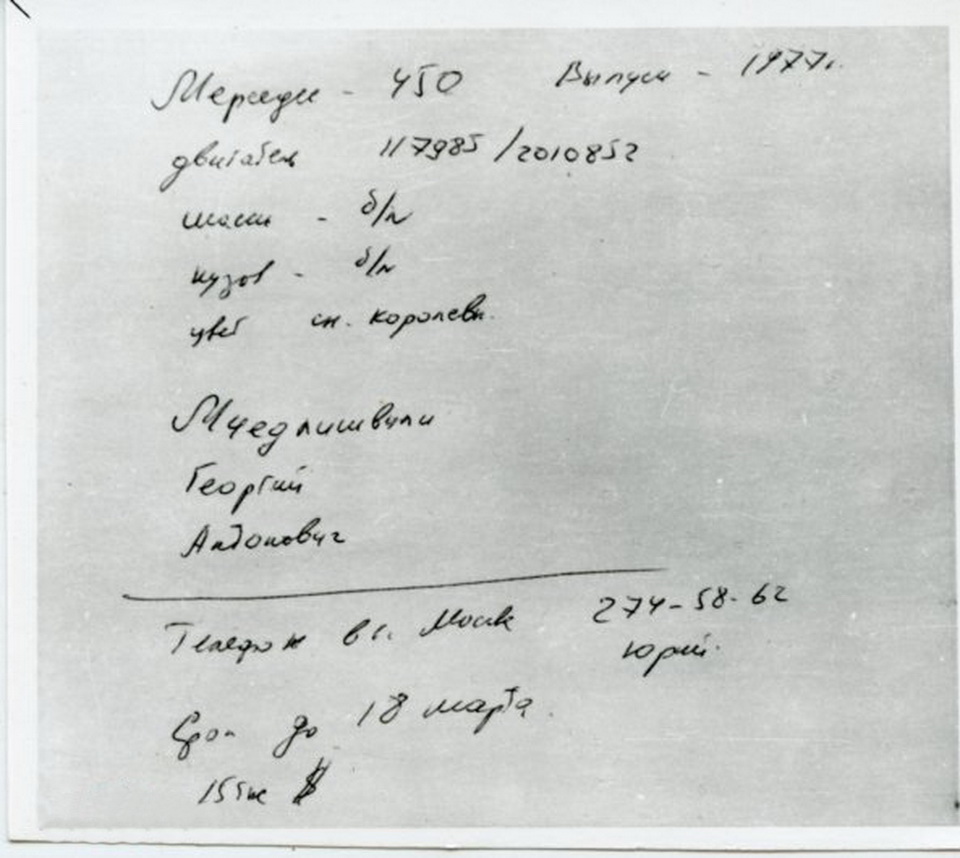 Мерседес - 450 Выпуск - 1977г.
двигатель 117985/2010852
шасси - б/н
кузов - б/н
цвет сн. королевы.
Мчедлишвили
Георгий
Антонович
Телефон в г. Москве 274-58-62
Юрий.
Срок до 18 марта.
15 тыс $